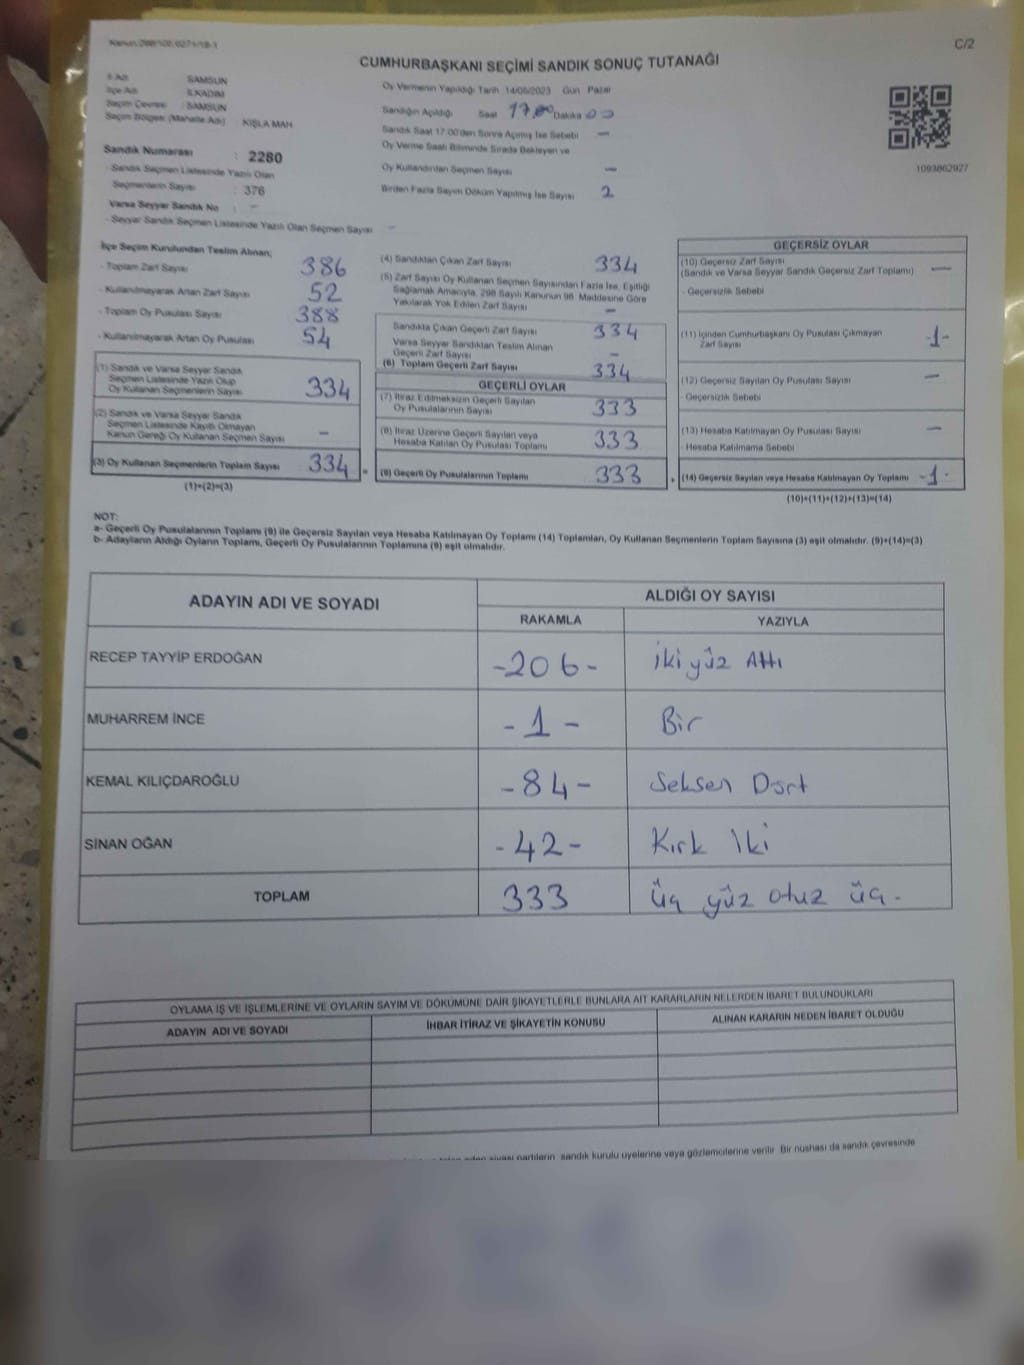 C/2
CUMHURBAŞKANI SEÇİMİ SANDIK SONUÇ TUTANAĞI
İl Adı SAMSUN
İlçe Adı İLKADIM
Seçim Çevresi : SAMSUN
Seçim Bölgesi (Mahalle Adı) KIŞLA MAH.
Sandık Numarası : 2280
- Sandık Seçmen Listesinde Yazılı Olan
Seçmenlerin Sayısı : 376
Varsa Seyyar Sandık No : -
- Seyyar Sandık Seçmen Listesinde Yazılı Olan Seçmen Sayısı -
Oy Vermenin Yapıldığı Tarih 14/05/2023 Gün Pazar
Sandığın Açıldığı Saat 17.00 Dakika
Sandık Saat 17:00'den Sonra Açılmış İse Sebebi —
Oy Verme Saati Bitiminde Sırada Bekleyen ve
Oy Kullandırılan Seçmen Sayısı —
Birden Fazla Sayım Döküm Yapılmış İse Sayısı 2
1093862927
İlçe Seçim Kurulundan Teslim Alınan;
- Toplam Zarf Sayısı 386
- Kullanılmayarak Artan Zarf Sayısı 52
- Toplam Oy Pusulası Sayısı 388
- Kullanılmayarak Artan Oy Pusulası 54
(1) Sandık ve Varsa Seyyar Sandık
Seçmen Listesinde Yazılı Olup
Oy Kullanan Seçmenlerin Sayısı 334
(2) Sandık ve Varsa Seyyar Sandık
Seçmen Listesinde Kayıtlı Olmayan
Kanun Gereği Oy Kullanan Seçmen Sayısı -
(3) Oy Kullanan Seçmenlerin Toplam Sayısı 334 =
(1)+(2)=(3)
(4) Sandıktan Çıkan Zarf Sayısı 334
(5) Zarf Sayısı Oy Kullanan Seçmen Sayısından Fazla İse, Eşitliği
Sağlamak Amacıyla, 298 Sayılı Kanunun 98. Maddesine Göre
Yakılarak Yok Edilen Zarf Sayısı —
Sandıkta Çıkan Geçerli Zarf Sayısı 334
Varsa Seyyar Sandıktan Teslim Alınan
Geçerli Zarf Sayısı -
(6) Toplam Geçerli Zarf Sayısı 334
GEÇERLİ OYLAR
(7) İtiraz Edilmeksizin Geçerli Sayılan
Oy Pusulalarının Sayısı 333
(8) İtiraz Üzerine Geçerli Sayılan veya
Hesaba Katılan Oy Pusulası Toplamı 333
(9) Geçerli Oy Pusulalarının Toplamı 333 +
GEÇERSİZ OYLAR
(10) Geçersiz Zarf Sayısı
(Sandık ve Varsa Seyyar Sandık Geçersiz Zarf Toplamı) —
- Geçersizlik Sebebi
(11) İçinden Cumhurbaşkanı Oy Pusulası Çıkmayan
Zarf Sayısı -1-
(12) Geçersiz Sayılan Oy Pusulası Sayısı —
- Geçersizlik Sebebi
(13) Hesaba Katılmayan Oy Pusulası Sayısı —
- Hesaba Katılmama Sebebi
(14) Geçersiz Sayılan veya Hesaba Katılmayan Oy Toplamı -1-
(10)+(11)+(12)+(13)=(14)
NOT:
a- Geçerli Oy Pusulalarının Toplamı (9) ile Geçersiz Sayılan veya Hesaba Katılmayan Oy Toplamı (14) Toplamları, Oy Kullanan Seçmenlerin Toplam Sayısına (3) eşit olmalıdır. (9)+(14)=(3)
b- Adayların Aldığı Oyların Toplamı, Geçerli Oy Pusulalarının Toplamına (9) eşit olmalıdır.
ADAYIN ADI VE SOYADI
ALDIĞI OY SAYISI
RAKAMLA YAZIYLA
RECEP TAYYİP ERDOĞAN -206- iki yüz Altı
MUHARREM İNCE -1- Bir
KEMAL KILIÇDAROĞLU -84- Seksen Dört
SİNAN OĞAN -42- Kırk İki
TOPLAM 333 üç yüz otuz üç-
OYLAMA İŞ VE İŞLEMLERİNE VE OYLARIN SAYIM VE DÖKÜMÜNE DAİR ŞİKAYETLERLE BUNLARA AİT KARARLARIN NELERDEN İBARET BULUNDUKLARI
ADAYIN ADI VE SOYADI İHBAR İTİRAZ VE ŞİKAYETİN KONUSU ALINAN KARARIN NEDEN İBARET OLDUĞU
siyasi partilerin, sandık kurulu üyelerine veya gözlemcilerine verilir. Bir nüshası da sandık çevresinde